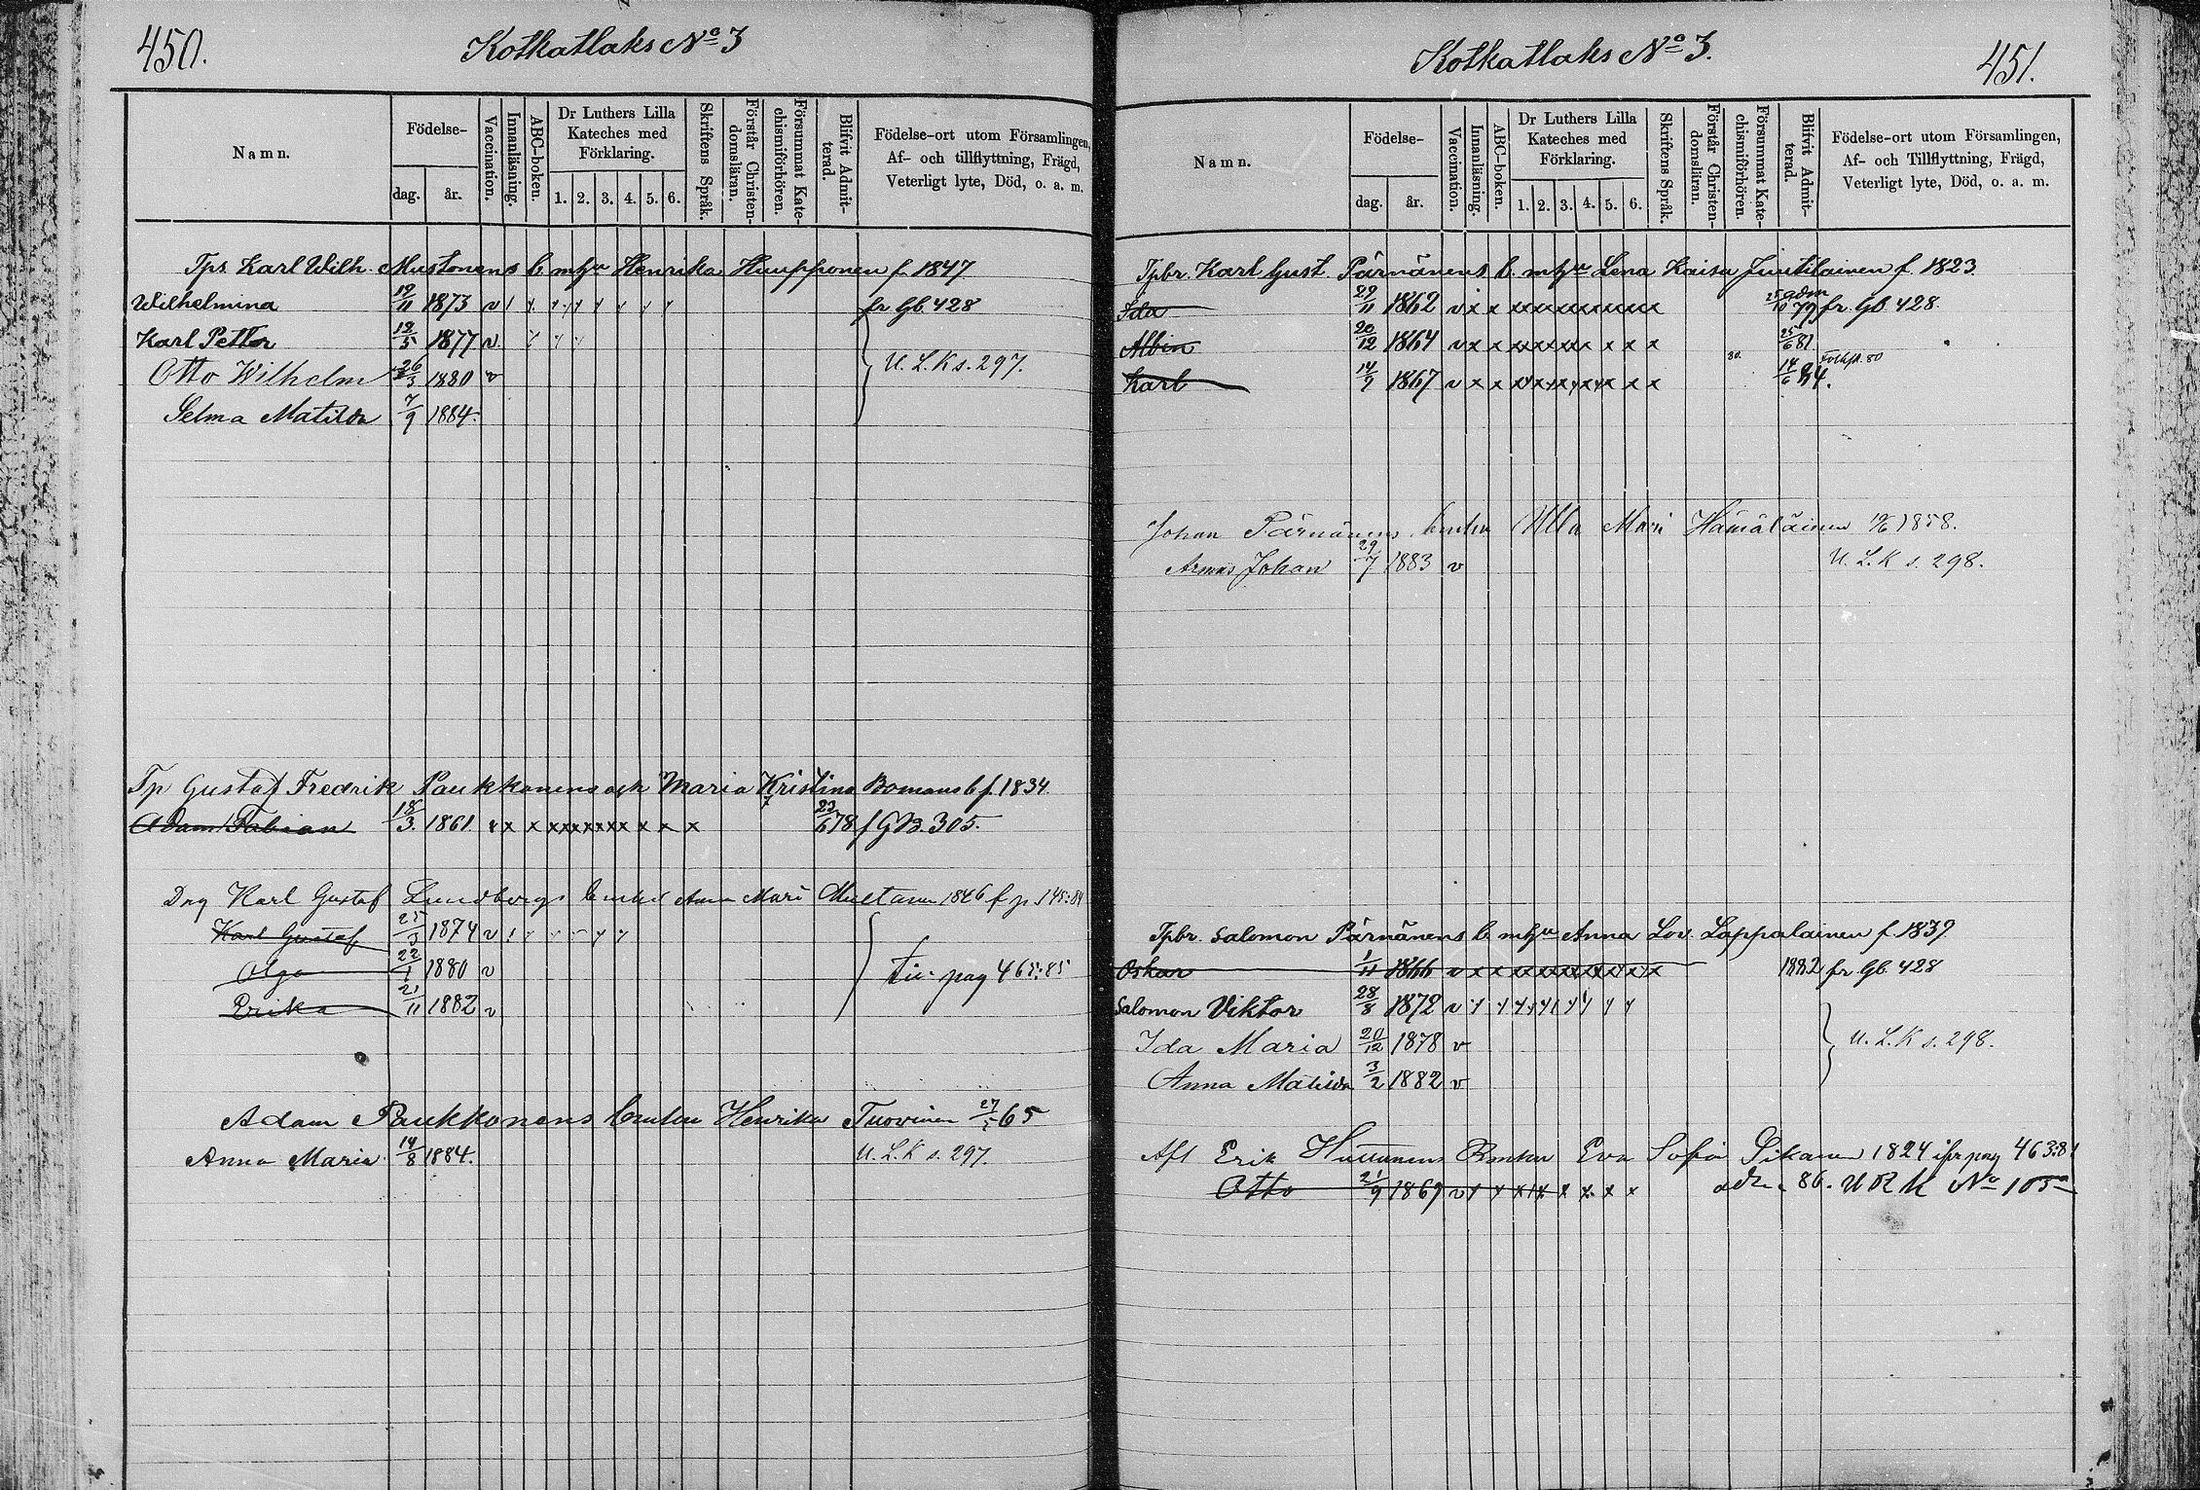 450.
Kotkatlaks No 3
Namn.
Födelse-
dag. år.
Vaccination.
Innanläsning.
ABC-boken.
Dr Luthers Lilla Kateches med Förklaring.
1. 2. 3. 4. 5. 6.
Skriftens Språk.
Förstår Christendomsläran.
Försummat Katechismiförhören.
Blifvit Admitterad.
Födelse-ort utom Församlingen,
Af- och tillflyttning, Frägd,
Veterligt lyte, Död, o. a. m.
Tps Karl Wilh. Mustonens b. m. Henrika Huupponen f. 1847
Wilhelmina 19/11 1873 v fr Gb. 428
Karl Petter 18/5 1877 v
Otto Wilhelm 26/3 1880 v U. L. K s. 297.
Selma Matilda 7/9 1884.
Tp Gustaf Fredrik Paukkonens och Maria Kristina Bomans b f. 1834
Adam Fabian 18/3 1861 v x x x x x x x x x x x x x 23/6 78 f GB. 305.
Drg Karl Gustaf Lundbergs Anna Mari 1846 f p. 145:84
Karl Gustaf 25/3 1874 v
Olga 22/1 1880 v pag 463:85
Erika 21/11 1882 v
Adam Paukkonens Henrika Tuovinen 27/5 65
Anna Maria 14/8 1884. U. L. K s. 297.
Kotkatlaks No 3.
451.
Namn.
Födelse-
dag. år.
Vaccination.
Innanläsning.
ABC-boken.
Dr Luthers Lilla Kateches med Förklaring.
1. 2. 3. 4. 5. 6.
Skriftens Språk.
Förstår Christendomsläran.
Försummat Katechismiförhören.
Blifvit Admitterad.
Födelse-ort utom Församlingen,
Af- och Tillflyttning, Frägd,
Veterligt lyte, Död, o. a. m.
Tpbr. Karl Gust. Pärnänens b. m. Lena Kaisa Juutilainen f. 1823
Ida 29/11 1862 v x x adm 25/10 79 fr. Gb 428.
Albin 20/12 1864 v x x 25/6 81
Karl 14/9 1867 v x x 80. 14/6 84. 80
Johan Pärnänens Ulla Mari Hämäläinen 1858.
Armas Johan 29/7 1883 v U. L. K s. 298.
Tpbr. Salomon Pärnänens b. m. Anna Lov. Lappalainen f. 1839
Oskar 1/11 1866 v x x 1882 fr Gb. 428
Salomon Viktor 28/8 1872 v
Ida Maria 20/12 1878 v U. L. K s. 298.
Anna Matilda 3/2 1882 v
Afl Erik Huttunens Eva Sofia Pikanen 1824 pag 463:81
Otto 21/9 1869 v 86. No 105